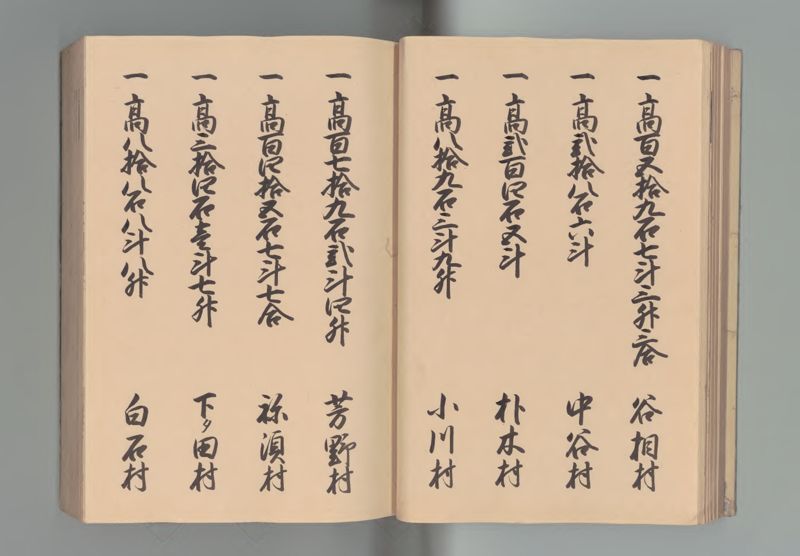 一 高百五拾九石七斗三升三合 谷相村
一 高弐拾八石六斗 中谷村
一 高弐百四石五斗 朴木村
一 高八拾九石三斗九升 小川村
一 高百七拾九石弐斗四升 芳野村
一 高百四拾五石七斗七合 祢須村
一 高三拾四石壱斗七升 下夕田村
一 高八拾八石八斗八升 白石村